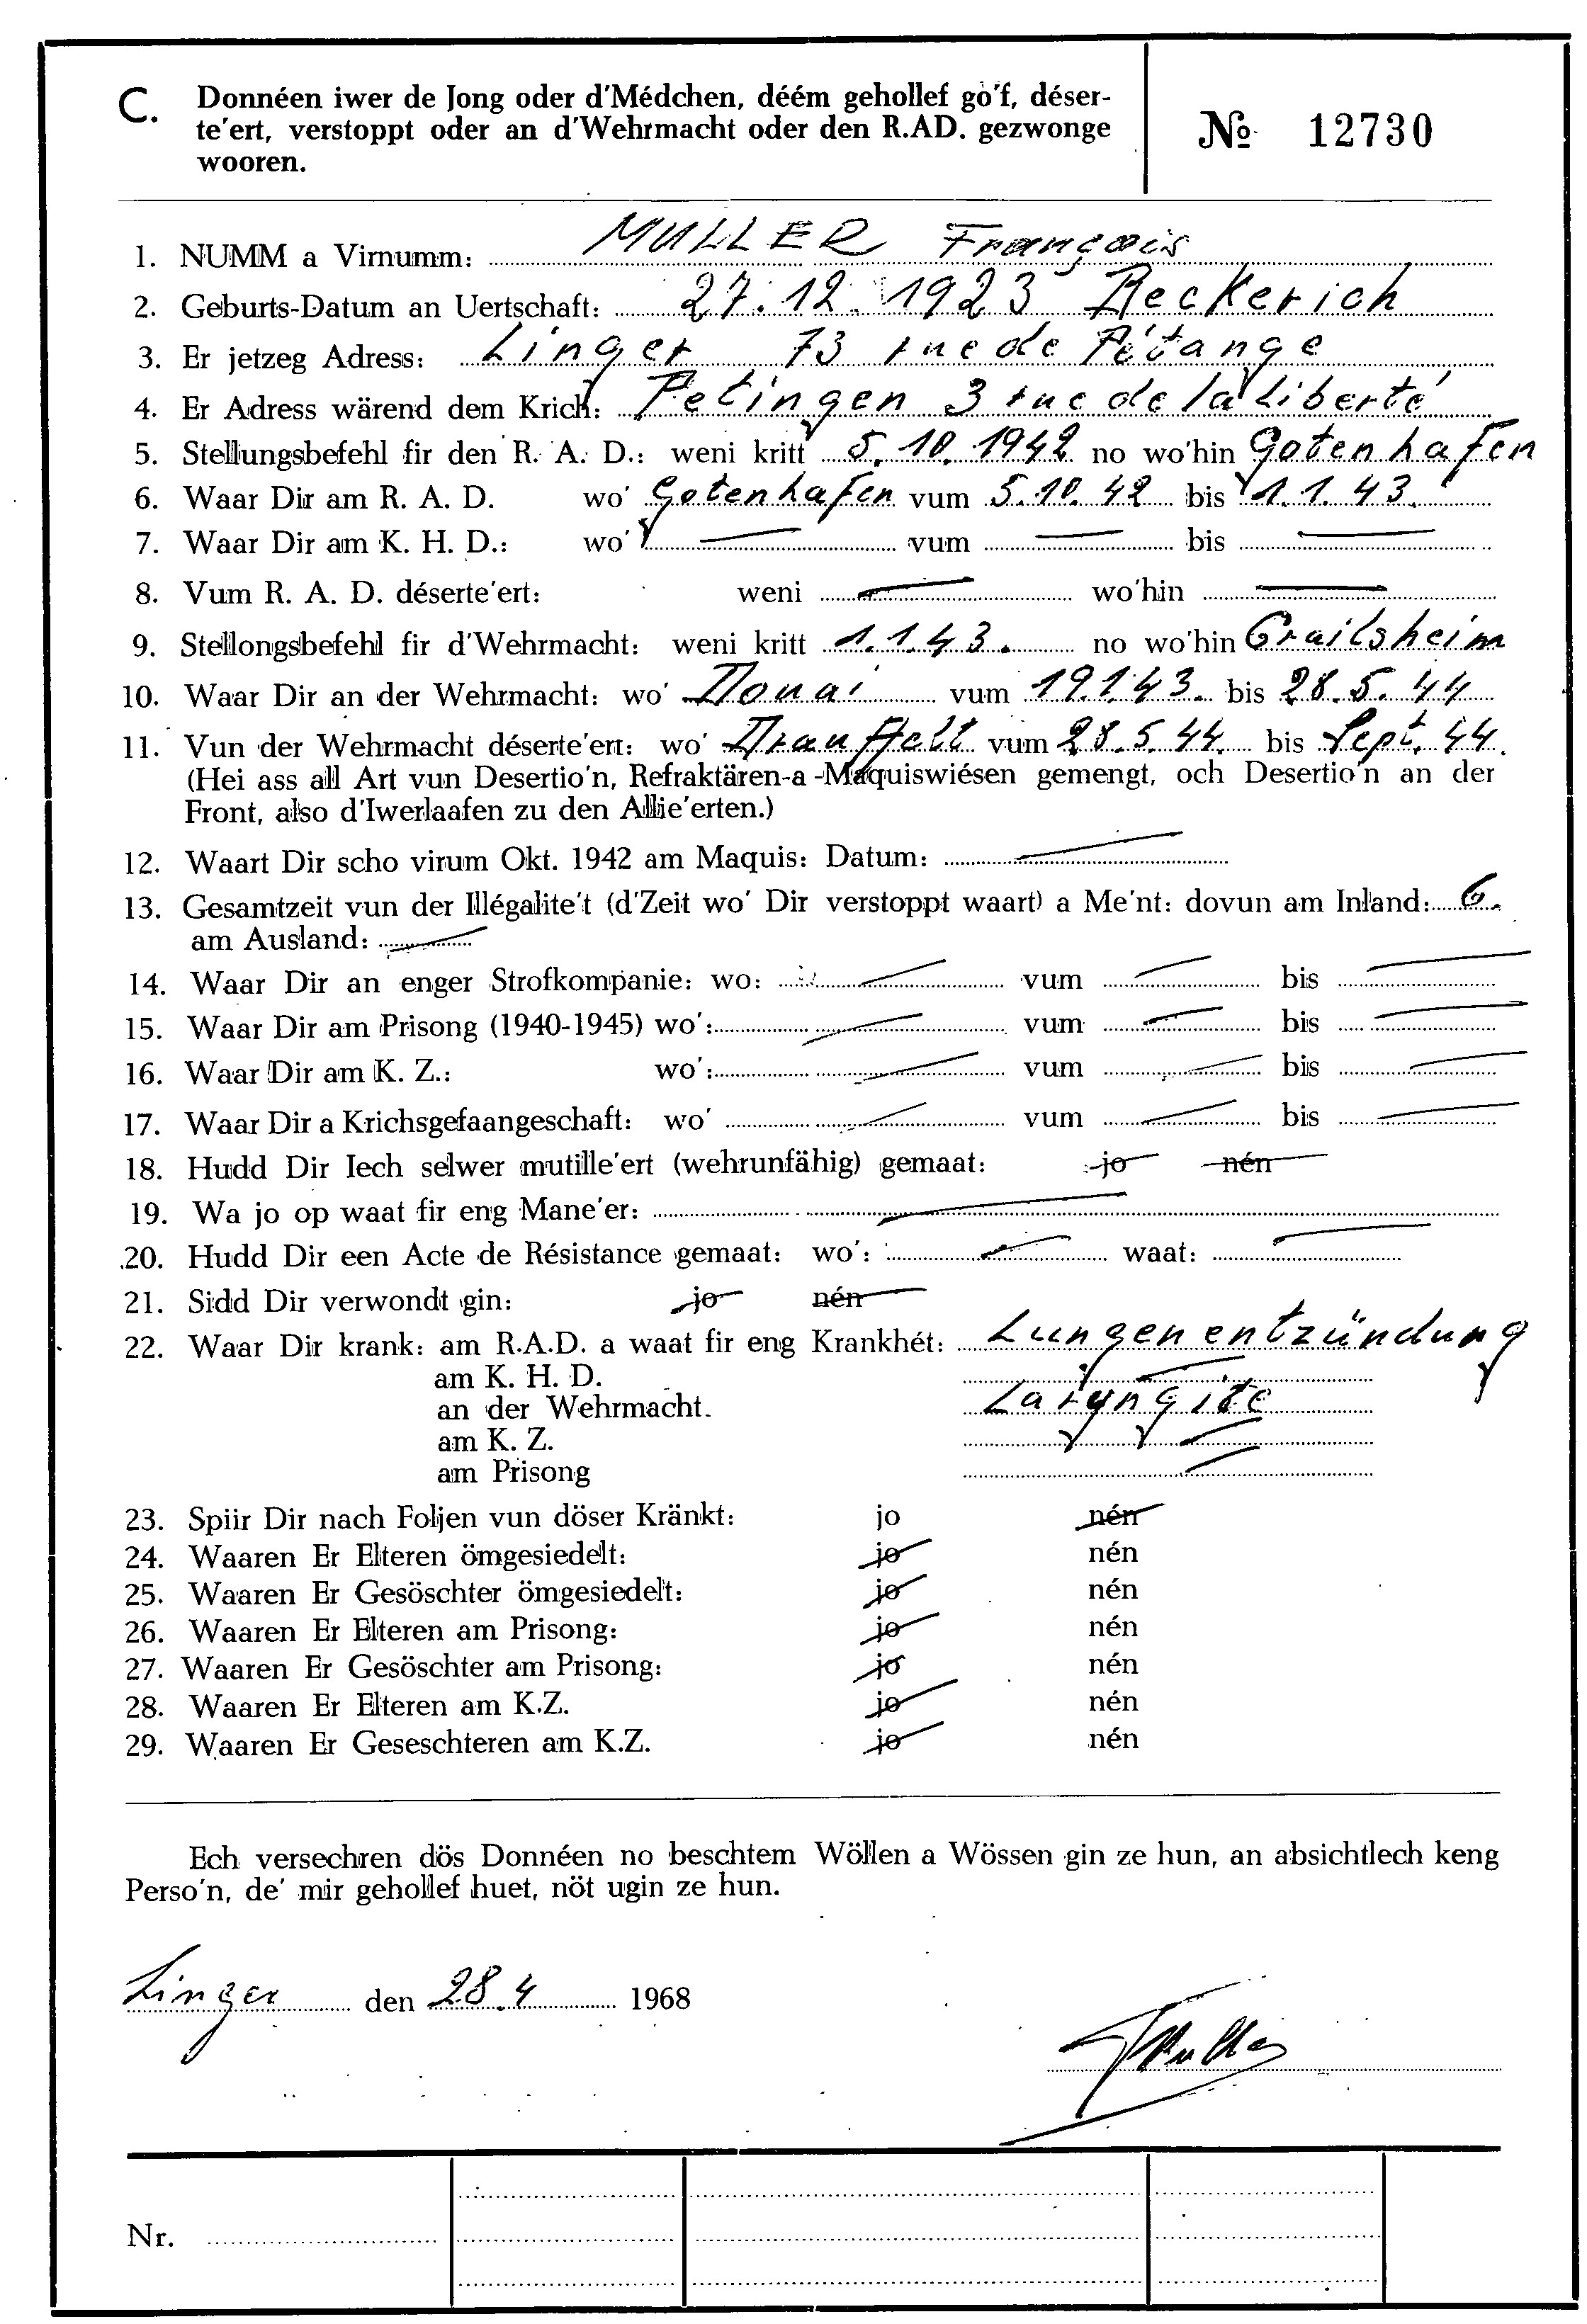 C. Donnéen iwer de Jong oder d'Médchen, déém gehollef go'f, déser-
te'ert, verstoppt oder an d'Wehrmacht oder den R.AD. gezwonge
wooren.
№ 12730
1. NUMM a Virnumm: MULLER François
2. Geburts-Datum an Uertschaft: 27.12.1923 Beckerich
3. Er jetzeg Adress: Linger 73 rue de Pétange
4. Er Adress wärend dem Krich: Petingen 3 rue de la Liberté
5. Stellungsbefehl fir den R. A. D.: weni kritt 5.10.1942 no wo'hin Gotenhafen
6. Waar Dir am R. A. D. wo' Gotenhafen vum 5.10.42 bis 1.1.43.
7. Waar Dir am K. H. D.: wo' — vum — bis —
8. Vum R. A. D. déserte'ert: weni — wo'hin —
9. Stellongsbefehl fir d'Wehrmacht: weni kritt 1.1.43. no wo'hin Crailsheim
10. Waar Dir an der Wehrmacht: wo' Douai vum 19.1.43. bis 28.5.44
11. Vun der Wehrmacht déserte'ert: wo' Drauffelt vum 28.5.44. bis Sept. 44.
(Hei ass all Art vun Desertio'n, Refraktären-a-Maquiswiésen gemengt, och Desertio'n an der
Front, also d'Iwerlaafen zu den Allie'erten.)
12. Waart Dir scho virum Okt. 1942 am Maquis: Datum: —
13. Gesamtzeit vun der Illégalite't (d'Zeit wo' Dir verstoppt waart) a Me'nt: dovun am Inland: 6.
am Ausland: —
14. Waar Dir an enger Strofkompanie: wo: — vum — bis —
15. Waar Dir am Prisong (1940-1945) wo': — vum — bis —
16. Waar Dir am K. Z.: wo': — vum — bis —
17. Waar Dir a Krichsgefaangeschaft: wo' — vum — bis —
18. Hudd Dir Iech selwer mutille'ert (wehrunfähig) gemaat: jo nén
19. Wa jo op waat fir eng Mane'er: —
20. Hudd Dir een Acte de Résistance gemaat: wo': — waat: —
21. Sidd Dir verwondt gin: jo nén
22. Waar Dir krank: am R.A.D. a waat fir eng Krankhét: Lungenentzündung
am K. H. D. —
an der Wehrmacht. Laryngite
am K. Z. —
am Prisong —
23. Spiir Dir nach Foljen vun döser Kränkt: jo nén
24. Waaren Er Elteren ömgesiedelt: jo nén
25. Waaren Er Gesöschter ömgesiedelt: jo nén
26. Waaren Er Elteren am Prisong: jo nén
27. Waaren Er Gesöschter am Prisong: jo nén
28. Waaren Er Elteren am K.Z. jo nén
29. Waaren Er Geseschteren am K.Z. jo nén
Ech versechren dös Donnéen no beschtem Wöllen a Wössen gin ze hun, an absichtlech keng
Perso'n, de' mir gehollef huet, nöt ugin ze hun.
Linger den 28.4 1968
FMuller
Nr.